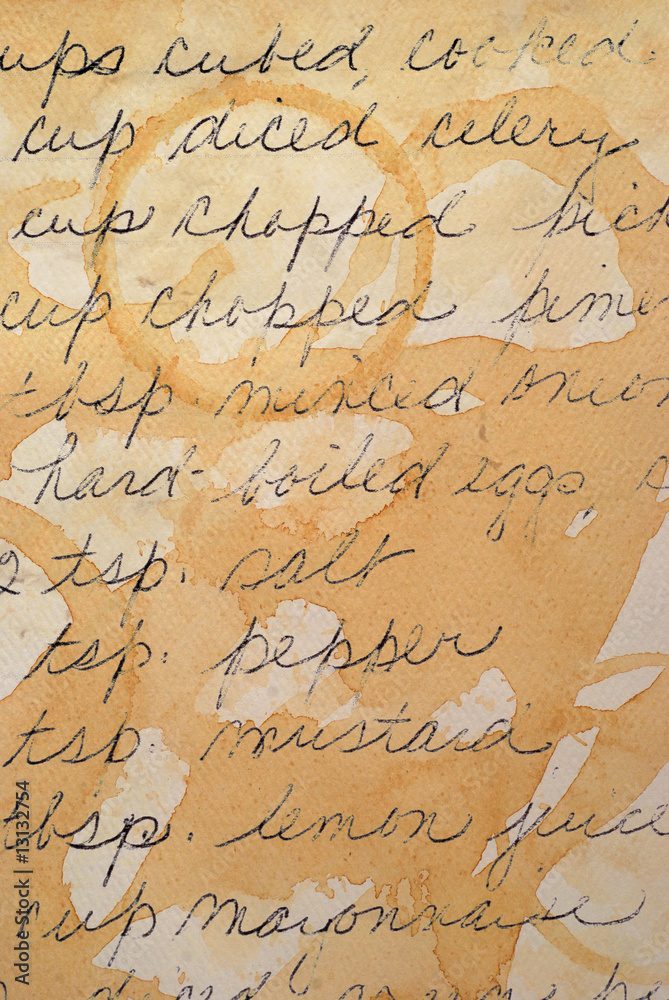 ups cubed, cooked
cup diced celery
cup chopped pick
cup chopped pime
tbsp. minced onion
hard-boiled eggs, s
2 tsp. salt
tsp. pepper
tsp. mustard
tbsp. lemon juice
cup mayonnaise
Adobe Stock | #13132754